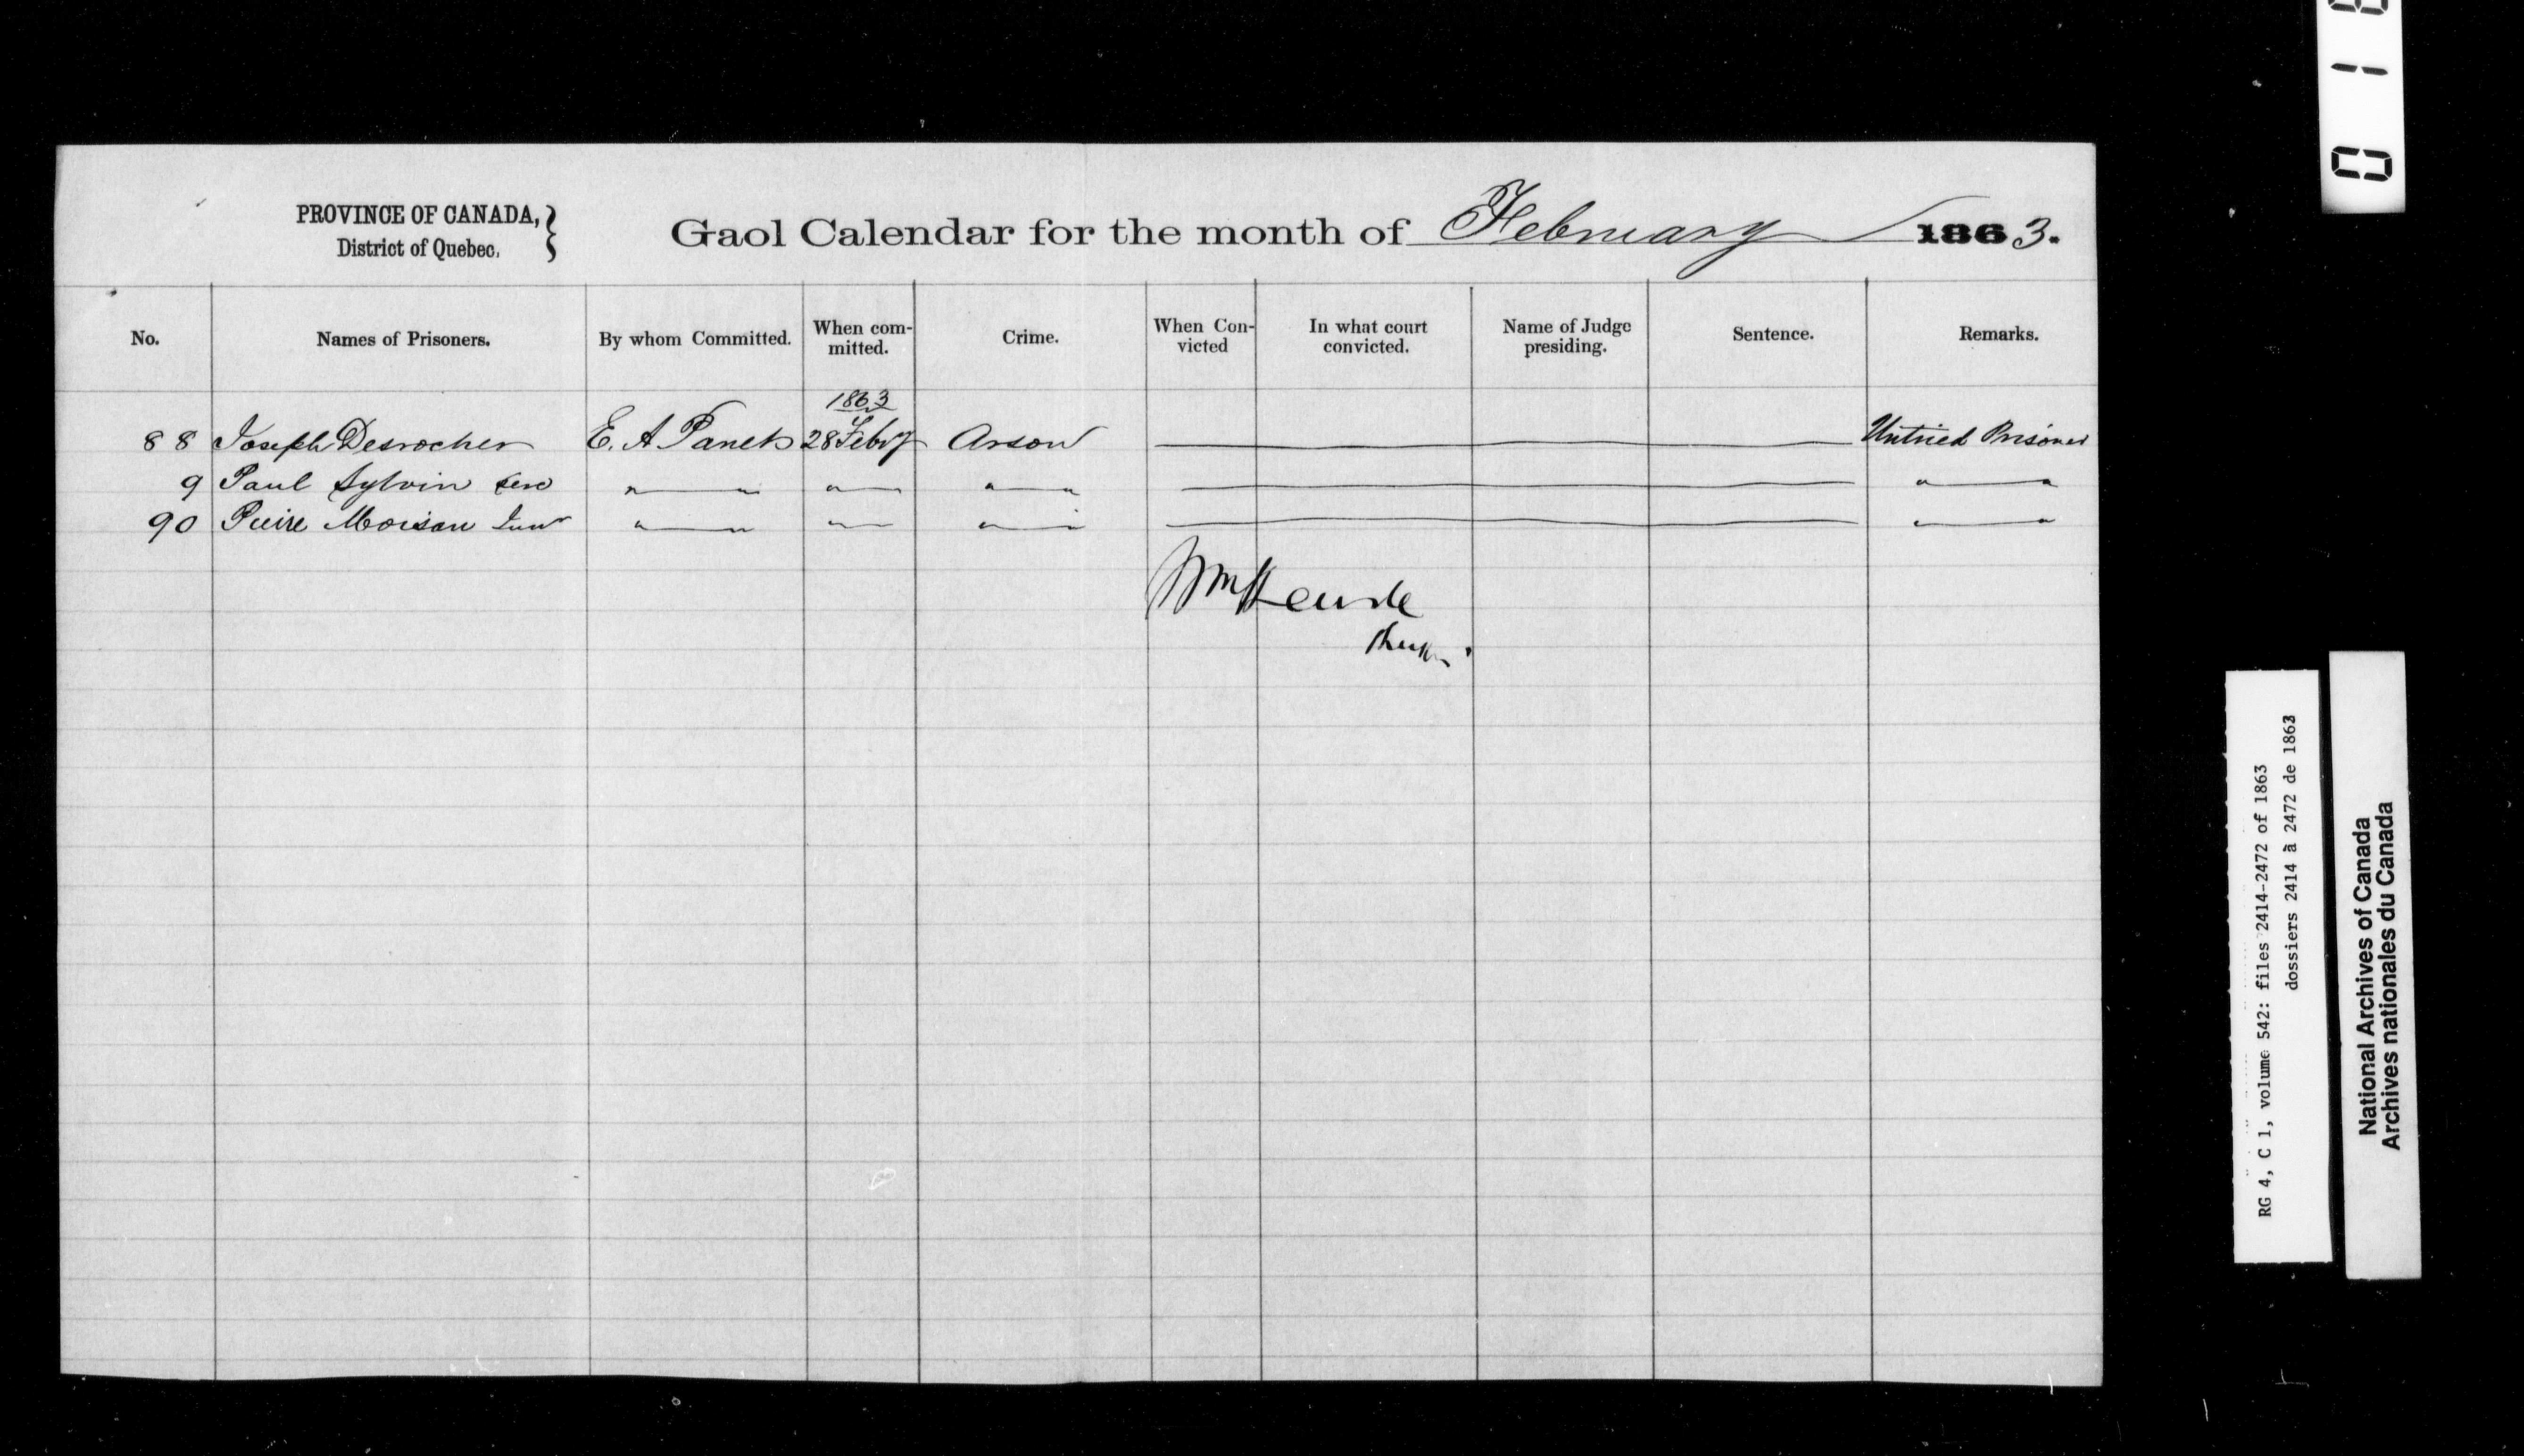 PROVINCE OF CANADA,
District of Quebec.
Gaol Calendar for the month of February 1863.
No. Names of Prisoners. By whom Committed. When committed. Crime. When Convicted In what court convicted. Name of Judge presiding. Sentence. Remarks.
1863
88 Joseph Desrocher E. A Panet 28 Febry Arson Untried Prisoner
9 Paul Sylvin Sen " " " " " " "
90 Pierre Moisan Jun " " " " " " "
RG 4, C 1, volume 542: files 2414-2472 of 1863
dossiers 2414 à 2472 de 1863
National Archives of Canada
Archives nationales du Canada